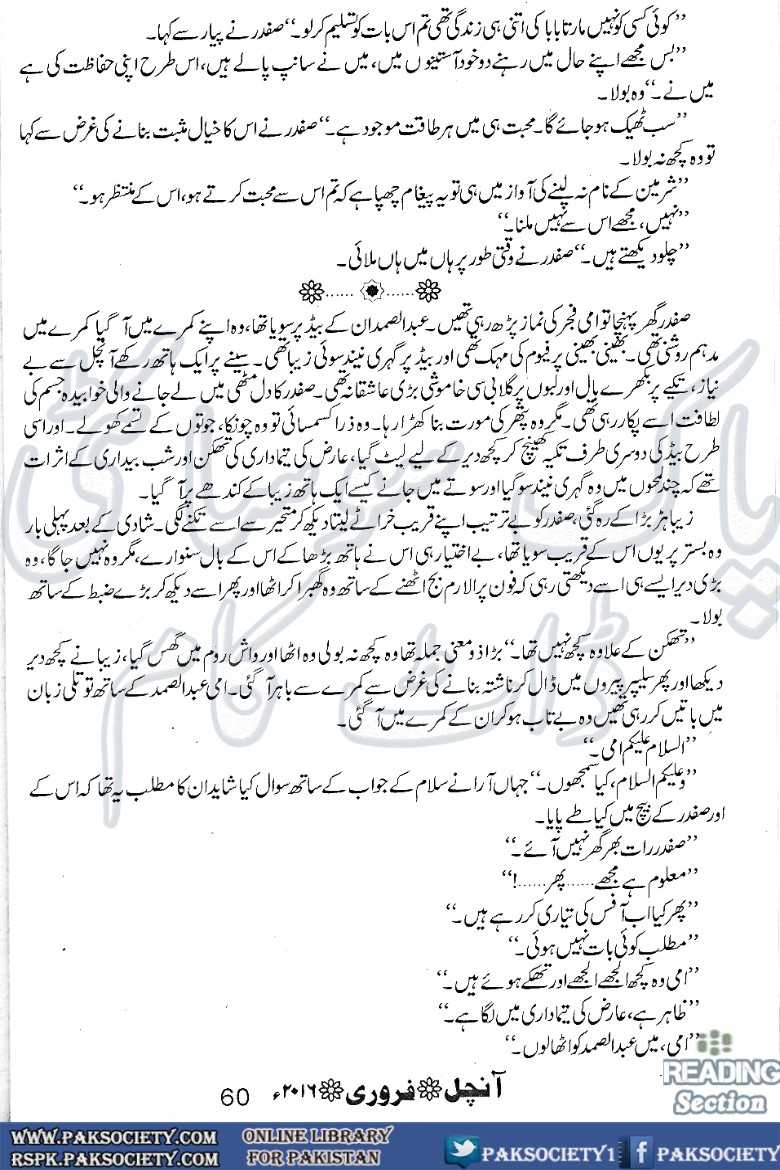 ’’کوئی کسی کو نہیں مارتا بابا کی اتنی ہی زندگی تھی تم اس بات کو تسلیم کرلو۔‘‘ صفدر نے پیار سے کہا۔
’’بس مجھے اپنے حال میں رہنے دو خود آستینوں میں، میں نے سانپ پالے ہیں، اس طرح اپنی حفاظت کی ہے
میں نے۔‘‘ وہ بولا۔
’’سب ٹھیک ہوجائے گا۔ محبت ہی میں ہر طاقت موجود ہے۔‘‘ صفدر نے اس کا خیال مثبت بنانے کی غرض سے کہا
تو وہ کچھ نہ بولا۔
’’شرمین کے نام نہ لینے کی آواز میں ہی تو یہ پیغام چھپا ہے کہ تم اس سے محبت کرتے ہو، اس کے منتظر ہو۔‘‘
’’نہیں، مجھے اس سے نہیں ملنا۔‘‘
’’چلو دیکھتے ہیں۔‘‘ صفدر نے وقتی طور پر ہاں میں ہاں ملائی۔
صفدر گھر پہنچا تو امی فجر کی نماز پڑھ رہی تھیں۔ عبدالصمد ان کے بیڈ پر سویا تھا، وہ اپنے کمرے میں آ گیا کمرے میں
مدہم روشنی تھی۔ بھینی بھینی پرفیوم کی مہک تھی اور بیڈ پر گہری نیند سوئی زیبا تھی۔ سینے پر ایک ہاتھ رکھے آنچل سے بے
نیاز، تکیے پر بکھرے بال اور لبوں پر گلابی سی خاموشی بڑی عاشقانہ تھی۔ صفدر کا دل مٹھی میں لے جانے والی خوابیدہ جسم کی
لطافت اسے پکار رہی تھی۔ مگر وہ پتھر کی مورت بنا کھڑا رہا۔ وہ ذرا کسمسائی تو وہ چونکا، جوتوں کے تسمے کھولے۔ اور اسی
طرح بیڈ کی دوسری طرف تکیہ کھینچ کر کچھ دیر کے لیے لیٹ گیا، عارض کی تیمارداری کی تھکن اور شب بیداری کے اثرات
تھے کہ چند لمحوں میں وہ گہری نیند سو گیا اور سوتے میں جانے کیسے ایک ہاتھ زیبا کے کندھے پر آ گیا۔
زیبا ہڑبڑا کے رہ گئی، صفدر کو بے ترتیب اپنے قریب خراٹے لیتا دیکھ کر متحیر سے اسے تکنے لگی۔ شادی کے بعد پہلی بار
وہ بستر پر یوں اس کے قریب سویا تھا، بے اختیار ہی اس نے ہاتھ بڑھا کے اس کے بال سنوارے، مگر وہ نہیں جاگا، وہ
بڑی دیر ایسے ہی اسے دیکھتی رہی کہ فون پر الارم بج اٹھنے کے ساتھ وہ گھبرا کر اٹھا اور پھر اسے دیکھ کر بڑے ضبط کے ساتھ
بولا۔
’’تھکن کے علاوہ کچھ نہیں تھا۔‘‘ بڑا ذو معنی جملہ تھا وہ کچھ نہ بولی وہ اٹھا اور واش روم میں گھس گیا، زیبا نے کچھ دیر
دیکھا اور پھر سلیپر پیروں میں ڈال کر ناشتہ بنانے کی غرض سے کمرے سے باہر آ گئی۔ امی عبدالصمد کے ساتھ توتلی زبان
میں باتیں کر رہی تھیں وہ بے تاب ہوکر ان کے کمرے میں آ گئی۔
’’السلام علیکم امی۔‘‘
’’وعلیکم السلام، کیا سمجھوں۔‘‘ جہاں آرا نے سلام کے جواب کے ساتھ سوال کیا شاید ان کا مطلب یہ تھا کہ اس کے
اور صفدر کے بیچ میں کیا طے پایا۔
’’صفدر رات بھر گھر نہیں آئے۔‘‘
’’معلوم ہے مجھے...... پھر......!‘‘
’’پھر کیا اب آفس کی تیاری کر رہے ہیں۔‘‘
’’مطلب کوئی بات نہیں ہوئی۔‘‘
’’امی وہ کچھ الجھے الجھے اور تھکے ہوئے ہیں۔‘‘
’’ظاہر ہے، عارض کی تیمارداری میں لگا ہے۔‘‘
’’امی، میں عبدالصمد کو اٹھالوں۔‘‘
آنچل فروری ۲۰۱۶ء 60
READING
Section
پاک سوسائٹی
ڈاٹ کام
WWW.PAKSOCIETY.COM ONLINE LIBRARY PAKSOCIETY1 f PAKSOCIETY
RSPK.PAKSOCIETY.COM FOR PAKISTAN